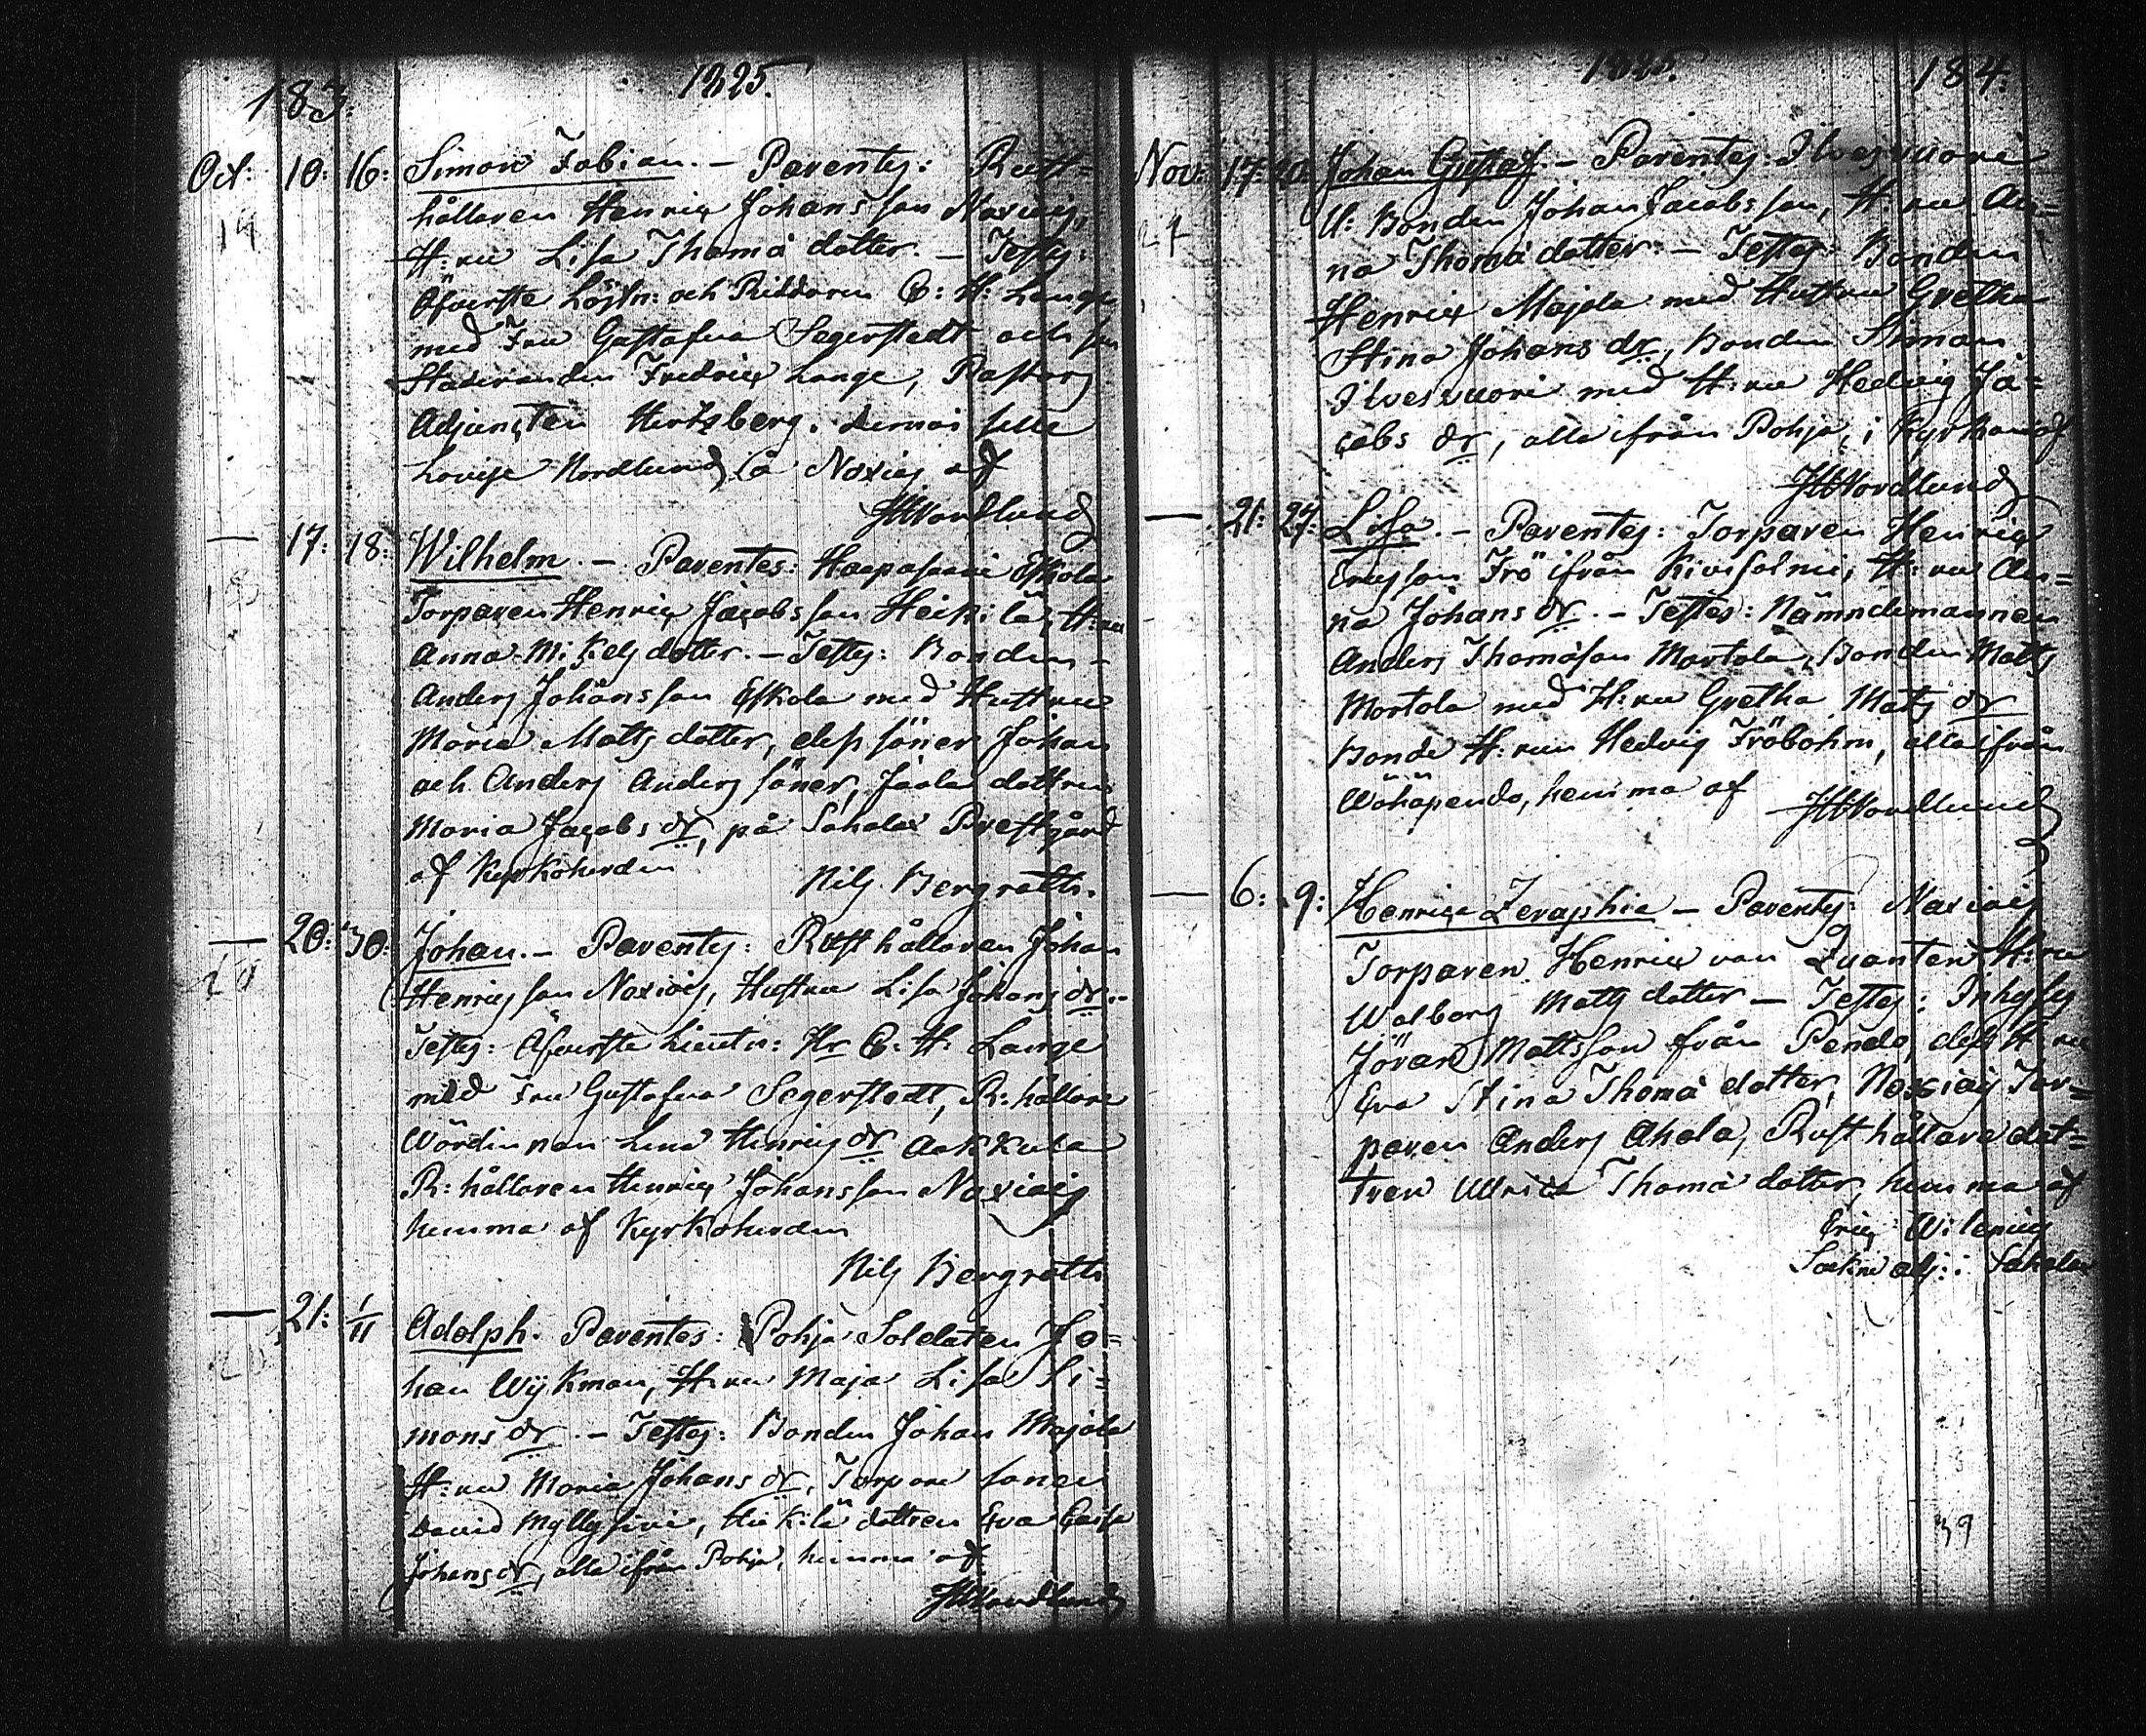 183.
1825.
Oct: 10: 16: Simon Fabian. – Parentes: Rust=
hållaren Henric Johansson Naxvig,
H:ru Lisa Thomä dotter. – Testes:
Öfverste Löjtn: och Riddaren C: H: Lange
med Fru Gustafva Segerstedt och
Studeranden Fredric Lange, Pastors
Adjuncten Hertzberg. demoiselle
Lovise Nordlund, å Naxvig af
JWNordlund
— 17: 18: Wilhelm. – Parentes: Haapasaari Eskola
Torparen Henric Jacobsson Heikilä, H:ru
Anna Mickels dotter. – Testes: Bonden
Anders Johansson Eskola med Hustru
Maria Matts dotter, dess söner Johan
och Anders Anders söner, Jaala dottren
Maria Jacobs dr, på Sahalax Prestgård
af Kyrkoherden
Nils Bergroth.
— 20: 30: Johan. – Parentes: Rusthållaren Johan
Henricsson Naxvig, Hustru Lisa Johans dr.
Testes: Öfverste Lieutn: Hr C: H: Lange
med Fru Gustafva Segerstedt, R:hållare
Wärdinnan Lena Henrics dr Aakkula
R:hållaren Henric Johansson Naxvig
hemma af Kyrkoherden
Nils Bergroth
— 21: 1/11 Adolph. Parentes: Pohja Soldaten Jo=
han Wijkman, H:ru Maja Lisa Si=
mons dr. – Testes: Bonden Johan Majala
H:ru Maria Johans dr, Torpare sonen
David Myllysivi, Heikilä dottren Eva Caisa
Johans dr, alla ifrån Pohja, hemma af
JWNordlund
1825.
184.
Nov: 17: 20: Johan Gustaf. – Parentes: Ilvesvuori
U: Bonden Johan Jacobsson, H:ru An=
na Thomä dotter. – Testes: Bonden
Henric Majala med Hustru Gretha
Stina Johans dr, Bonden Simon
Ilvesvuori med H:ru Hedvig Ja=
cobs dr, alla ifrån Pohja, i Kyrkan af
JWNordlund
— 21: 27: Lisa. – Parentes: Torparen Henric
Ericsson Frö ifrån Kivisalmi, H:ru An=
na Johans dr. – Testes: Nämndemannen
Anders Thomasson Martola, Bonden Matts
Martola med H:ru Gretha Mats dr
Bonde H:run Hedvig Fröbohm, alla ifrån
Wähäpendo, hemma af JWNordlund
— 6: 9: Henrica Zeraphia – Parentes: Naxvig
Torparen Henric von Qvanten H:ru
Walborg Matts dotter – Testes: Inhyses
Jöran Mattsson från Pendo, dess H:ru
Eva Stina Thomä dotter, Naxvig Tor=
paren Anders Ahala, Rusthållare dot=
tren Ulrica Thomä dotter, hemma af
Eric Wilenius
Sockne adj: i Sahalax
39